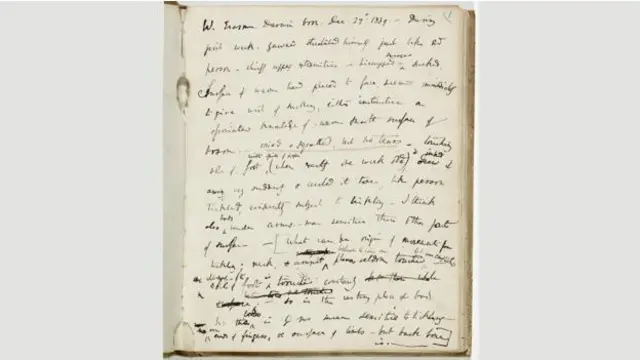 W. Erasmus Darwin born. Dec. 27th 1839. — During
first week. yawned, stretched himself just like old
person — chiefly upper extremities — hiccupped — sneezes sucked.
Surface of warm hand placed to face, seemed immediately
to give wish of sucking, either instinctive or
associated knowledge of warm smooth surface of
bosom. — cried & squalled, but no tears — touching
sole of foot with spill of paper, (when exactly one week old), it jerked it
away very suddenly & curled its toes, like person
tickled, evidently subject to tickling — I think
also body under arms. — more sensitive than other parts
of surface — [What can be origin of movement from
tickling; neck, & armpit between the toes are places seldom touched
sole of foot touched constantly
— so in the resting place of
of fingers, or surface of limbs — but back bone
is. —]